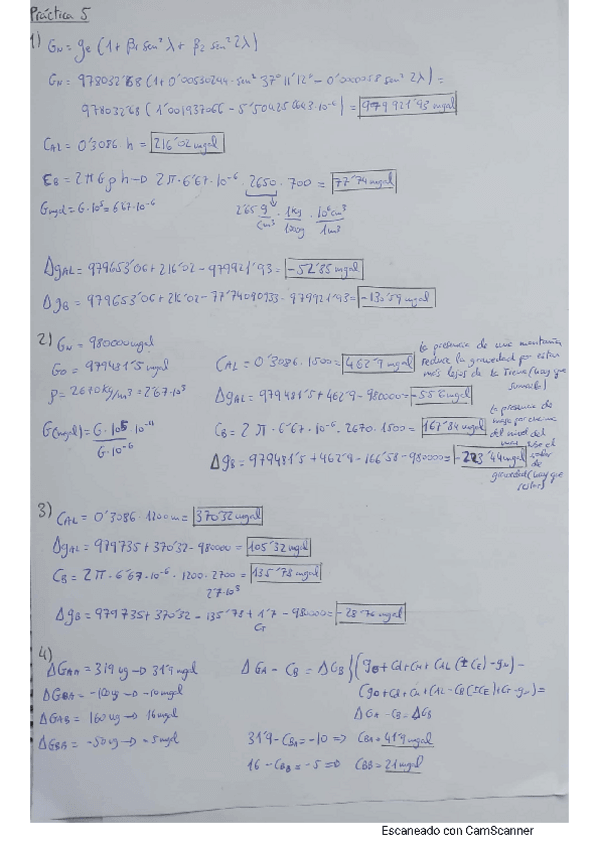 Práctica 5
1) GN = ge (1 + β1 sen² λ + β2 sen² 2λ)
GN = 978032'68 (1 + 0'00530244 · sen² 37° 11' 12" - 0'0000058 sen² 2λ) =
97803268 (1'001937066 - 5'504250643·10⁻⁶) = 979921'93 mgal
CAL = 0'3086 h = 216'02 mgal
CB = 2πGρh → 2π · 6'67·10⁻⁶ · 2650 · 700 = 77'74 mgal
Gmgal = G·10⁵ = 6'67·10⁻⁶
2'65 g/cm³ · 1kg/1000g · 10⁶cm³/1m³
ΔgAL = 979653'06 + 216'02 - 979921'93 = -52'85 mgal
ΔgB = 979653'06 + 216'02 - 77'74090933 - 979921'93 = -130'59 mgal
2) GN = 980000 mgal
G0 = 979481'5 mgal
ρ = 2670 kg/m³ = 2'67·10³
G(mgal) = G·10⁵ 10⁻¹¹
G·10⁻⁶
CAL = 0'3086 · 1500 = 462'9 mgal
la presencia de una montaña
reduce la gravedad por estar
más lejos de la Tierra (hay que
sumarla)
ΔgAL = 979481'5 + 462'9 - 980000 = -55'6 mgal
CB = 2π · 6'67·10⁻⁶ · 2670 · 1500 = 167'84 mgal
la presencia de
masa por encima
del nivel del
mar sube el
valor
de
gravedad (hay que
restar)
ΔgB = 979481'5 + 462'9 - 166'58 - 980000 = -223'44 mgal
3) CAL = 0'3086 · 1200m = 370'32 mgal
ΔgAL = 979735 + 370'32 - 980000 = 105'32 mgal
CB = 2π · 6'67·10⁻⁶ · 1200 · 2700 = 135'78 mgal
2'7·10³
ΔgB = 979735 + 370'32 - 135'78 + 1'7 - 980000 = -28'76 mgal
CT
4)
ΔGAA = 319 ug → 31'9 mgal
ΔGBA = -100 ug → -10 mgal
ΔGAB = 160 ug → 16 mgal
ΔGBA = -50 ug → -5 mgal
ΔGA - CB = ΔGB
ΔGA - CB = ΔGB
31'9 - CBA = -10 ⇒ CBA = 41'9 mgal
16 - CBB = -5 ⇒ CBB = 21 mgal
Escaneado con CamScanner